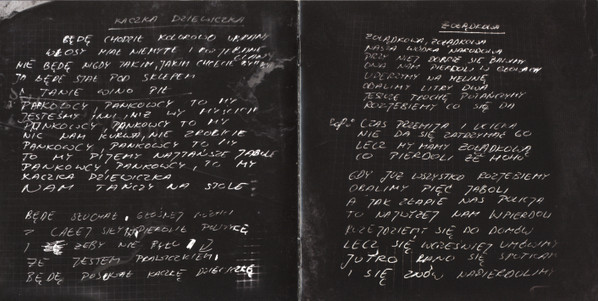 KACZKA DZIEWICZKA
BĘDĘ CHODZIŁ KOLOROWO UBRANY
WŁOSY MIAŁ NIEMYTE I
NIE BĘDĘ NIGDY TAKIM, JAKIM CHCECIE
JA BĘDĘ STAŁ POD SKLEPEM
I TANIE WINO PIŁ
PANKOWCY, PANKOWCY TO MY
JESTEŚMY INNI, NIŻ WY
PANKOWCY, PANKOWCY TO MY
NIC NAM KURWA, NIE ZROBICIE
PANKOWCY, PANKOWCY, TO MY
TO MY PIJEMY NAJTAŃSZE JABOLE
PANKOWCY, PANKOWCY, TO MY
KACZKA DZIEWICZKA
NAM TAŃCZY NA STOLE
BĘDĘ SŁUCHAŁ GŁOŚNEJ MUZYKI
Z CAŁEJ SIŁY POLITYKĘ
I ŻEBY NIE BYŁO
ŻE JESTEM
BĘDĘ KACZKĘ DZIEWICZKĘ
ŻOŁĄDKOWA
ŻOŁĄDKOWA, ŻOŁĄDKOWA
NASZA WÓDKA NARODOWA
PRZY NIEJ DOBRZE SIĘ BAWIMY
ONA NAM
UDERZYMY NA MELINĘ
OBALIMY LITRY DWA
JESZCZE TROCHĘ POTAŃCZYMY
ROZJEBIEMY CO SIĘ DA
CZAS PRZEMIJA I UCIEKA
NIE DA SIĘ ZATRZYMAĆ GO
LECZ MY MAMY ŻOŁĄDKOWĄ
CO PIERDOLI ŻE
GDY JUŻ WSZYSTKO ROZJEBIEMY
OBALIMY PIĘĆ JABOLI
A JAK ZŁAPIE NAS POLICJA
TO NAJWYŻEJ NAM WPIERDOLI
ROZEJDZIEMY SIĘ DO DOMÓW
LECZ SIĘ WCZEŚNIEJ UMÓWIMY
JUTRO RANO SIĘ SPOTKAMY
I SIĘ ZNÓW NAPIERDOLIMY